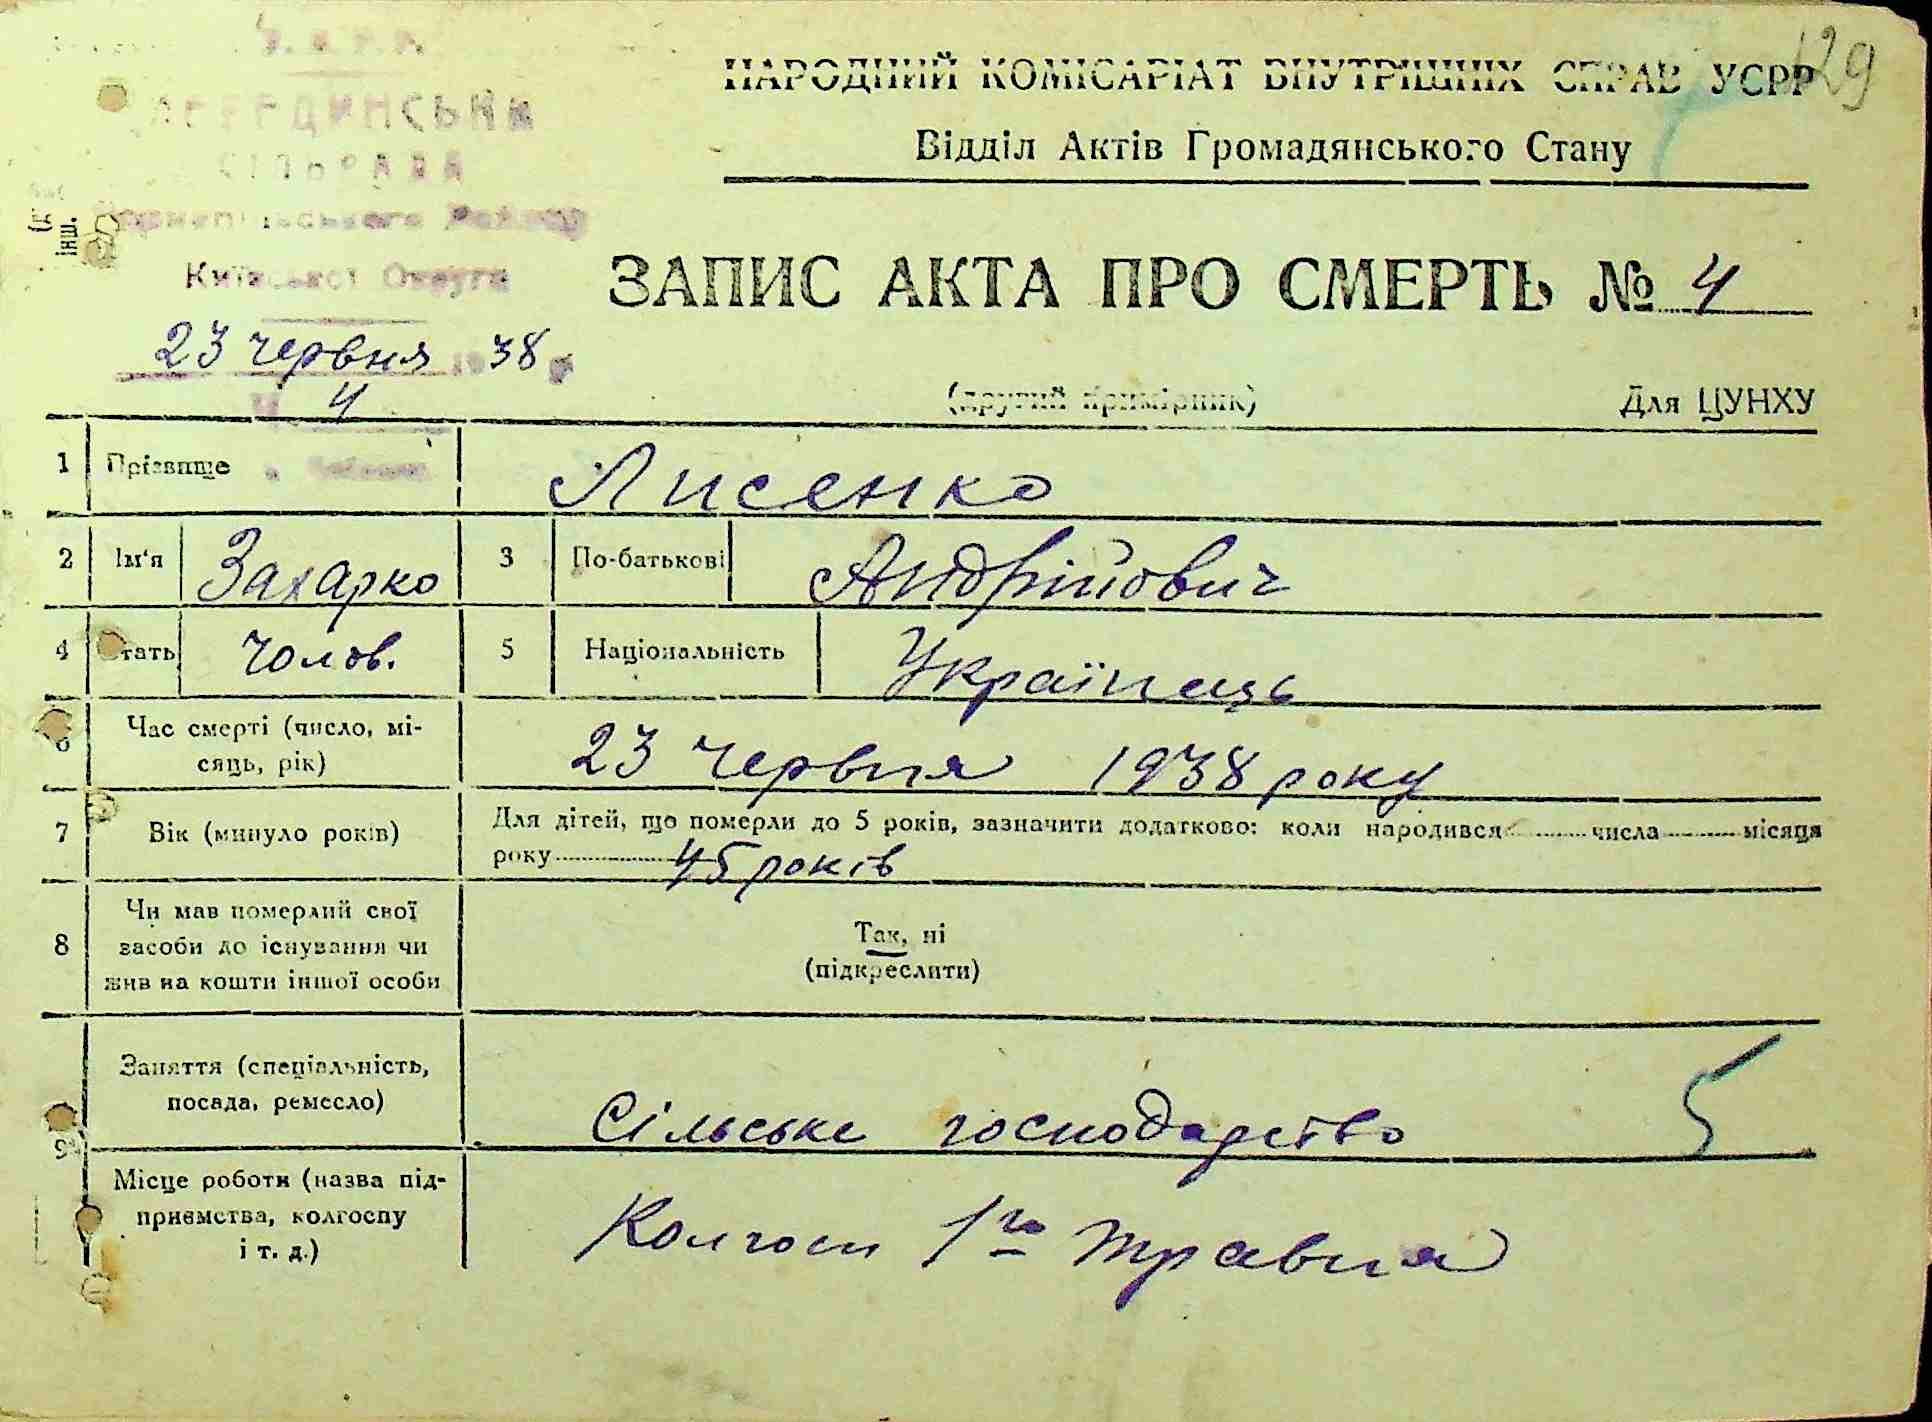 129
НАРОДНИЙ КОМІСАРІАТ ВНУТРІШНІХ СПРАВ УСРР
Відділ Актів Громадянського Стану
У. С. Р. Р.
СІЛЬРАДА
Київської Округи
інш.
ЗАПИС АКТА ПРО СМЕРТЬ № 4
23 червня 1938 р.
№ 4
(другий примірник)
Для ЦУНХУ
1 Прізвище Лисенко
2 Ім'я Захарко 3 По-батькові Андрійович
4 Стать Чолов. 5 Національність Українець
6 Час смерті (число, мі-
сяць, рік) 23 червня 1938 року
7 Вік (минуло років) Для дітей, що померли до 5 років, зазначити додатково: коли народився ........ числа ........ місяця
року ........ 45 років
8 Чи мав померлий свої
засоби до існування чи
жив на кошти іншої особи
Так, ні
(підкреслити)
9 Заняття (спеціальність,
посада, ремесло) Сільське господарство 5
Місце роботи (назва під-
приємства, колгоспу
і т. д.) Колгосп 1го травня